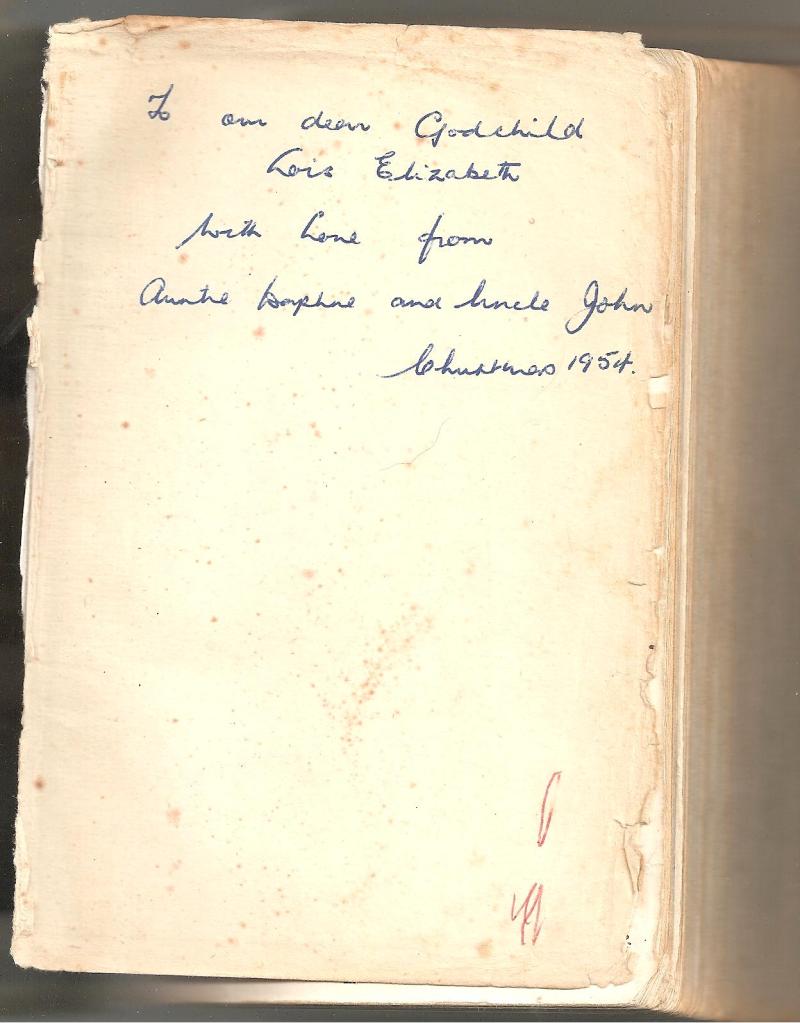 To our dear Godchild
Lois Elizabeth
With Love from
Auntie Daphne and Uncle John
Christmas 1954.